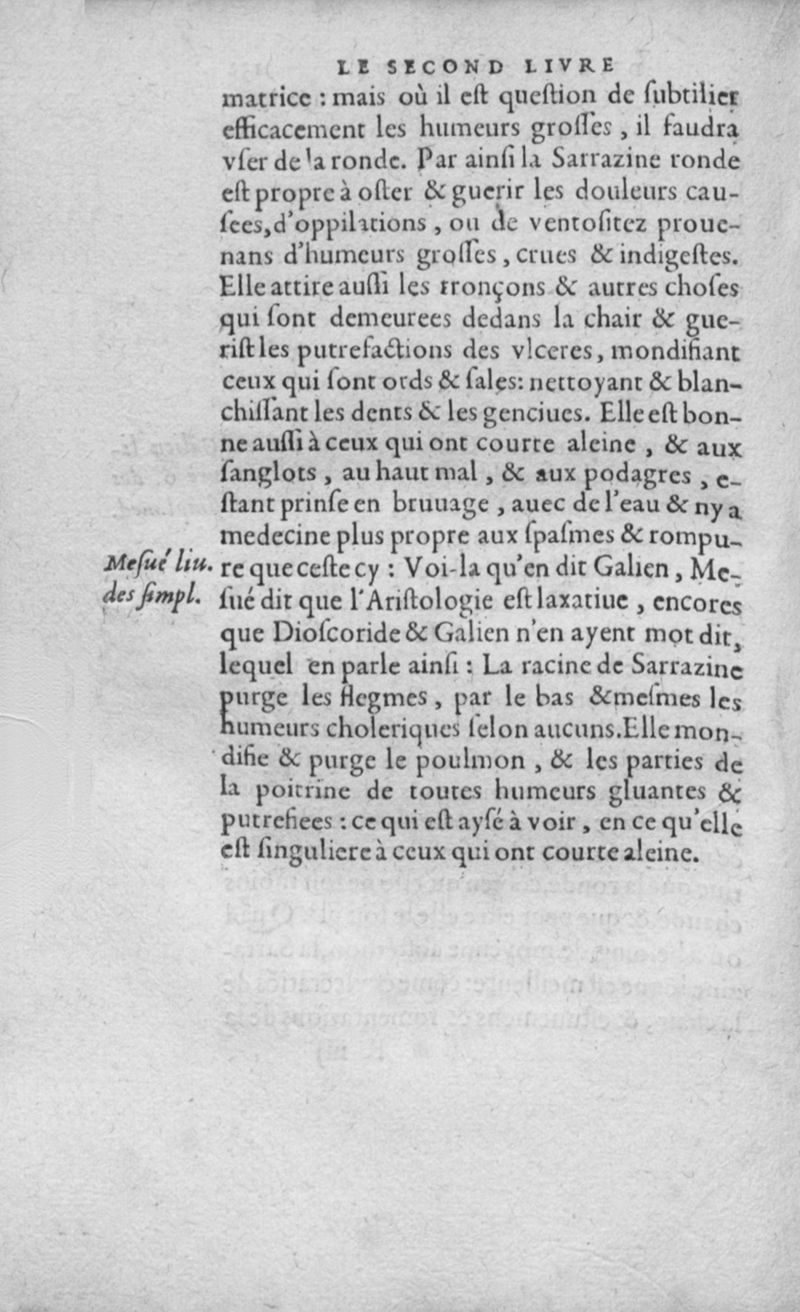 LE SECOND LIVRE
matrice : mais où il eſt queſtion de ſubtilier
efficacement les humeurs groſſes , il faudra
vſer de la ronde. Par ainſi la Sarrazine ronde
eſt propre à oſter & guerir les douleurs cau-
ſees, d'oppilations , ou de ventoſitez proue-
nans d'humeurs groſſes , crues & indigeſtes.
Elle attire auſſi les tronçons & autres choſes
qui ſont demeurees dedans la chair & gue-
riſt les putrefactions des vlceres, mondifiant
ceux qui ſont ords & ſales: nettoyant & blan-
chiſſant les dents & les genciues. Elle eſt bon-
ne auſſi à ceux qui ont courte aleine , & aux
ſanglots , au haut mal , & aux podagres , e-
ſtant prinſe en bruuage , auec de l'eau & ny a
medecine plus propre aux ſpaſmes & rompu-
Meſué liu. re que ceſte cy : Voi-la qu'en dit Galien , Me-
des ſimpl. ſué dit que l'Ariſtologie eſt laxatiue , encores
que Dioſcoride & Galien n'en ayent mot dit,
lequel en parle ainſi : La racine de Sarrazine
purge les flegmes , par le bas & meſmes les
humeurs choleriques ſelon aucuns. Elle mon-
difie & purge le poulmon , & les parties de
la poitrine de toutes humeurs gluantes &
putrefiees : ce qui eſt ayſé à voir , en ce qu'elle
eſt ſinguliere à ceux qui ont courte aleine.